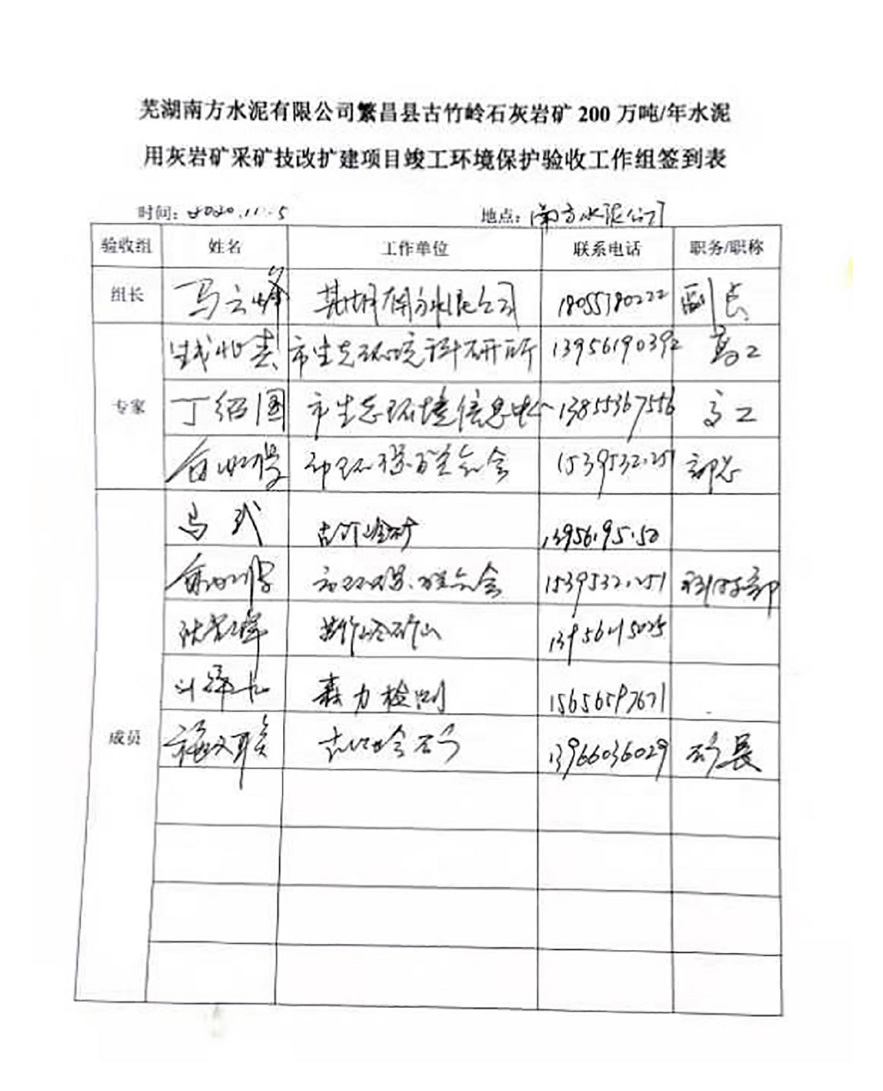 芜湖南方水泥有限公司繁昌县古竹岭石灰岩矿 200 万吨/年水泥
用灰岩矿采矿技改扩建项目竣工环境保护验收工作组签到表
时间：2020.11.5 地点：南方水泥公司
验收组 姓名 工作单位 联系电话 职务/职称
组长 马云峰 芜湖南方水泥公司 18055780222 副
专家 市生态环境科研所 13956190392 高工
丁绍国 市生态环境信息中心 13855367556 高工
市环保联合会 15395321251
成员 马 古竹岭矿
市环保联合会 15395321251
古竹岭矿山 13956415025
森力检测 15656597671
古竹岭矿 13966036029 矿长